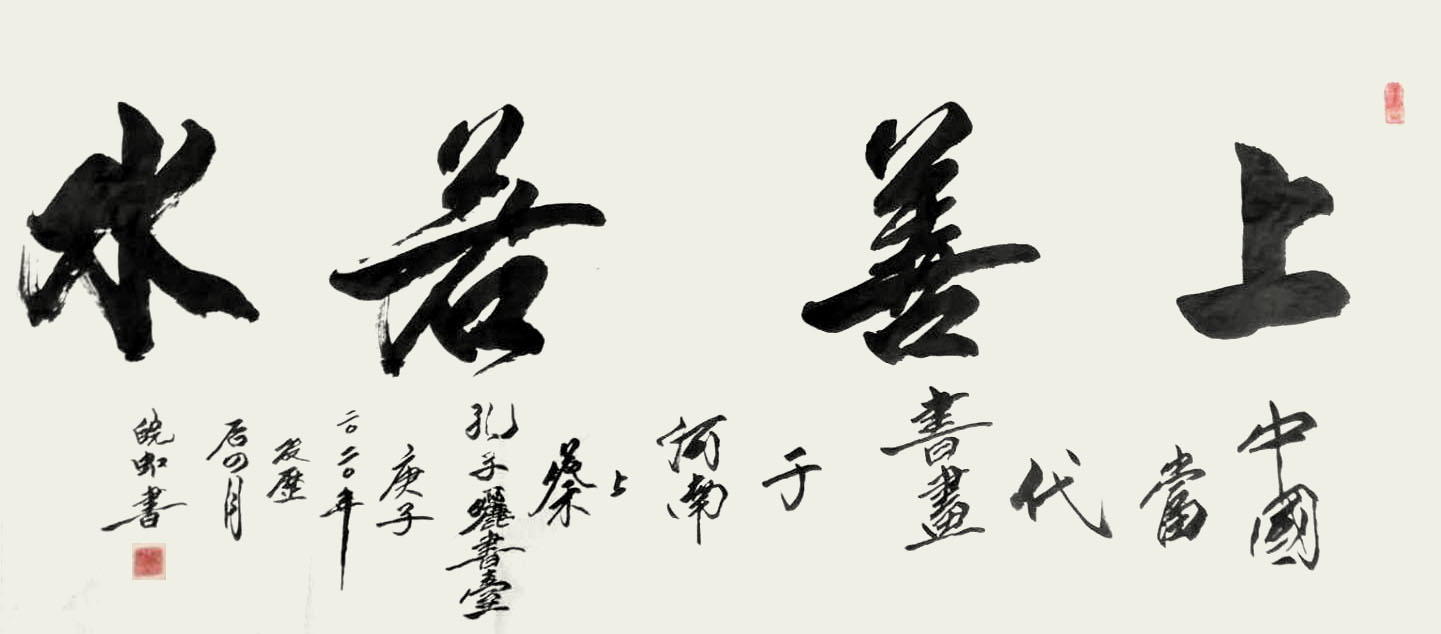 上善若水
中國
當
代
書畫
于
河南
上
蔡
孔子曬書臺
庚子
二〇二〇年
農歷
后四月
皖虹書